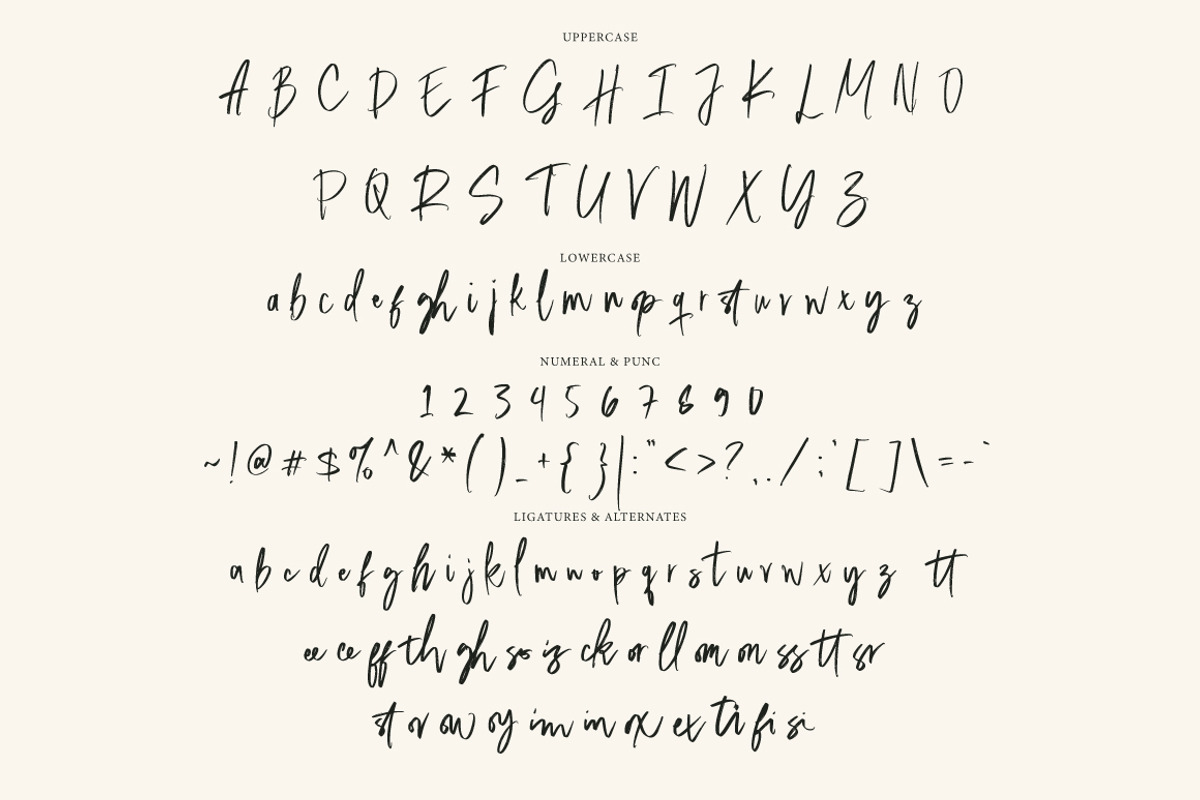 UPPERCASE
A B C D E F G H I J K L M N O
P Q R S T U V W X Y Z
LOWERCASE
a b c d e f g h i j k l m n o p q r s t u v w x y z
NUMERAL & PUNC
1 2 3 4 5 6 7 8 9 0
~ ! @ # $ % ^ & * ( ) _ + { } | : " < > ? , . / ; ' [ ] \ = - `
LIGATURES & ALTERNATES
a b c d e f g h i j k l m n o p q r s t u v w x y z tt
ee ce ff th gh so is ck or ll om on ss tt sr
st ov ow oy im in ox ex ti fi si